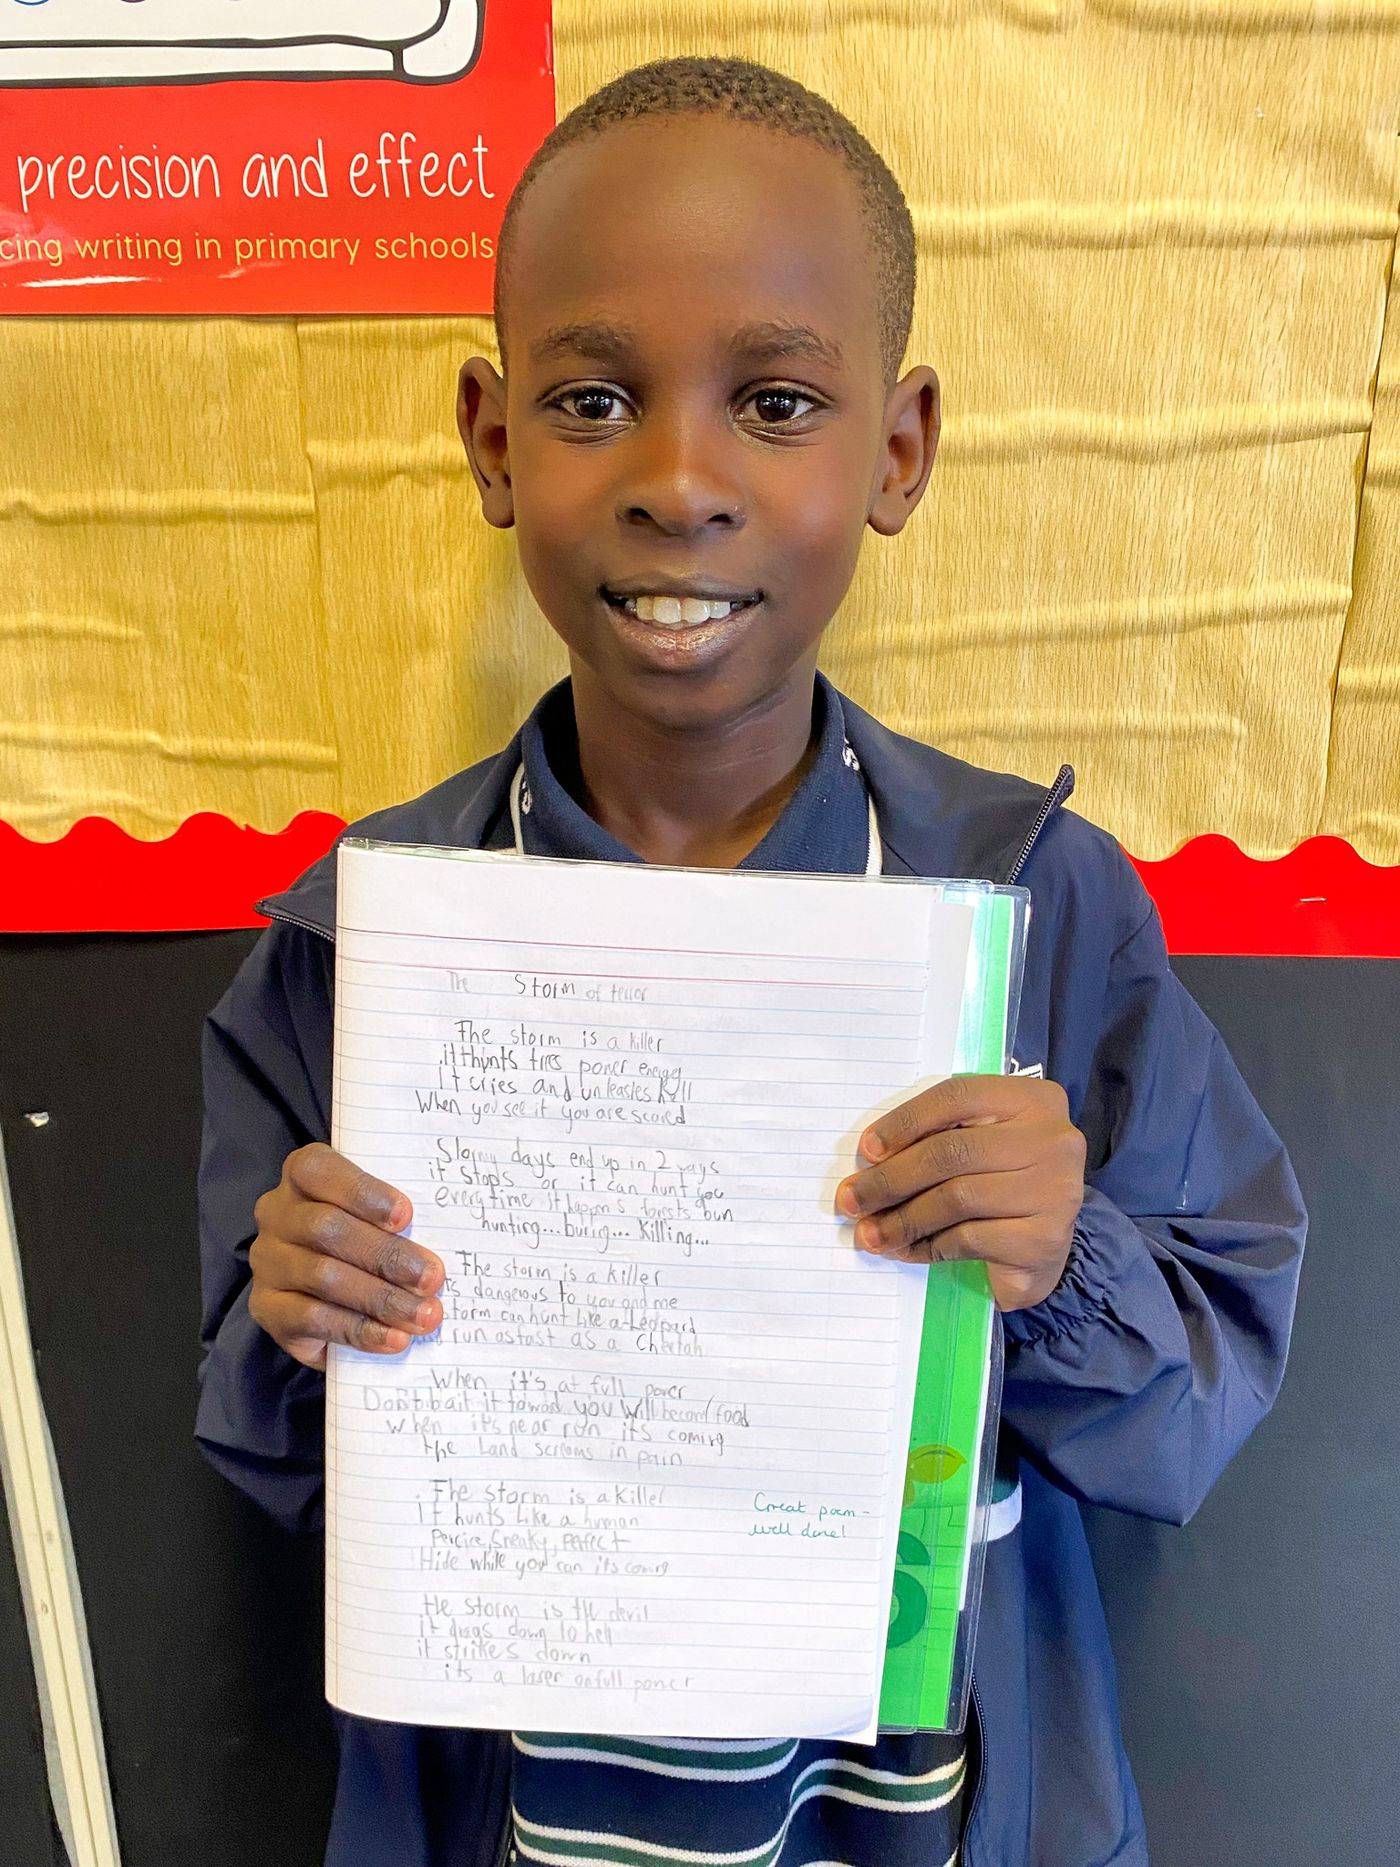 precision and effect
cing writing in primary schools
The Storm of terror
The storm is a killer
it thunts trees power energy
It cries and unleasles hell
When you see it you are scared
Stormy days end up in 2 ways
it stops or it can hunt you
every time it happens forests burn
hunting...buring... Killing...
The storm is a killer
its dangerous to you and me
Storm can hunt Like a Leopard
run as fast as a Cheetah
When it's at full power
Don't bait it toward you will become food
When its near run its coming
the Land screams in pain
The storm is a killer
It hunts Like a human
Percire, Sneaky, Perfect
Hide while you can its coming
Great poem -
well done!
the storm is the devil
it drags down to hell
it strikes down
its a laser on full power